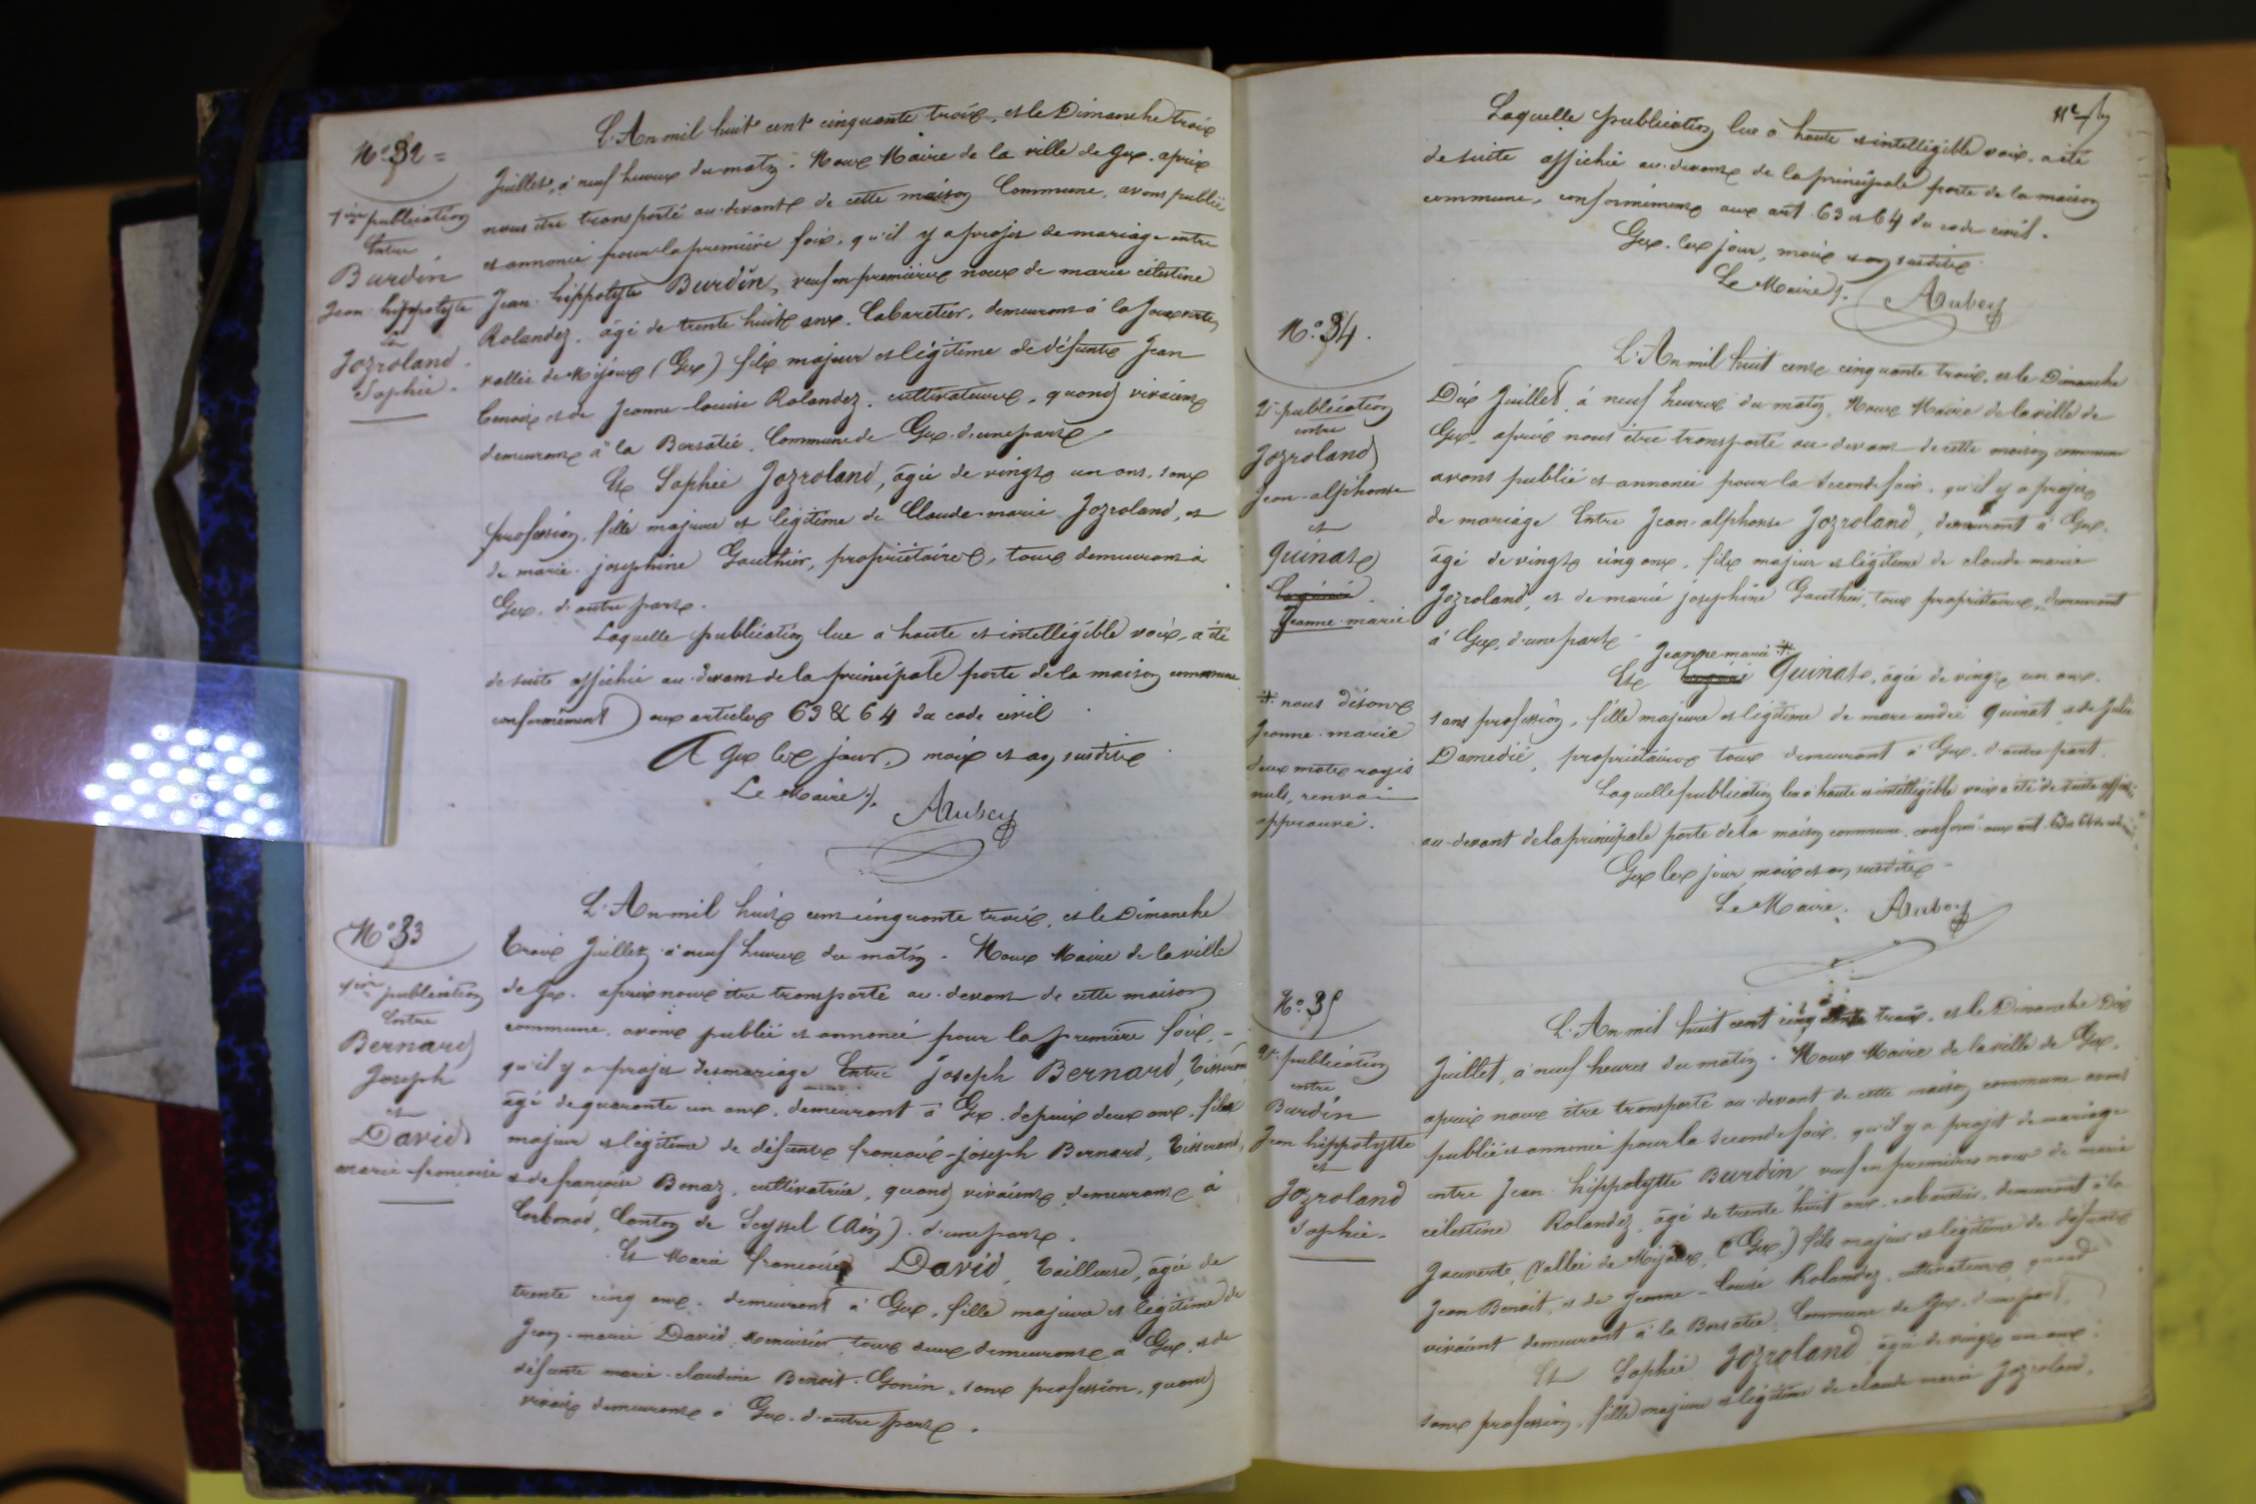 N.o 32 =
1ère publication
Entre
Burdin
Jean hippolytte
et
Jozroland
Sophie.
L'An mil huit cent cinquante trois, et le Dimanche trois
Juillet, à neuf heures du matin. Nous Maire de la ville de Gex. après
nous être transporté au devant de cette maison Commune, avons publié
et annoncé pour la première fois, qu'il y a projet de mariage entre
Jean hippolytte Burdin, veuf en premières noces de marie célestine
Rolandez, âgé de trente huit ans. Cabaretier, demeurant à la faucille
vallée de Mijoux (Gex) fils majeur et légitime de défunts Jean
Benoit et de Jeanne-louise Rolandez, cultivateurs, quand vivaient
demeurant à la Borsatie, Commune de Gex. d'une part
Et Sophie Jozroland, âgée de vingt un ans, sans
profession, fille majeure et légitime de Claude-marie Jozroland, et
de marie josephine Gauthier, propriétaires, tous demeurant à
Gex, d'autre part.
Laquelle publication lue a haute et intelligible voix, a été
de suite affichée au devant de la principale porte de la maison commune
conformément aux articles 63 & 64 du code civil
A Gex les jour, mois et an susdits
Le Maire
Aubery
N.o 33
1ère publication
Entre
Bernard
Joseph
et
David
marie-françoise
L'An mil huit cent cinquante trois, et le Dimanche
Trois Juillet, à neuf heures du matin. Nous Maire de la ville
de Gex. après nous être transporté au devant de cette maison
commune, avons publié et annoncé pour la première fois,
qu'il y a projet de mariage Entre joseph Bernard, Tisserand
âgé de quarante un ans, demeurant à Gex depuis deux ans, fils
majeur et légitime de défunts francois-joseph Bernard, Tisserand,
et de françoise Bonaz, cultivatrice, quand vivaient demeurant à
Corbonod, Canton de Seyssel (Ain). d'une part.
Et Marie francoise David, Tailleuse, âgée de
trente cinq ans. demeurant à Gex, fille majeure et légitime de
Jean-marie David, menuisier, tous deux demeurant à Gex, et de
défunte marie-claudine Benoit-Gonin, sans profession, quand
vivait demeurant à Gex. d'autre part.
Laquelle publication lue a haute et intelligible voix, a été
de suite affichée au devant de la principale porte de la maison
commune, conformément aux art 63 et 64 du code civil.
Gex. les jour, mois et an susdits
Le Maire
Aubery
N.o 34.
2e publication
entre
Jozroland
Jean-alphonse
et
Quinat
Jeanne-marie
* nous disons
Jeanne-marie
deux mots rayés
nuls, renvoi
approuvé.
L'An mil huit cent cinquante trois, et le Dimanche
Dix Juillet, à neuf heures du matin, Nous Maire de la ville de
Gex, après nous être transporté au devant de cette maison commune
avons publié et annoncé pour la seconde fois, qu'il y a projet
de mariage Entre Jean-alphonse Jozroland, demeurant à Gex,
âgé de vingt cinq ans, fils majeur et légitime de claude marie
Jozroland, et de marie josephine Gauthier, tous propriétaires, demeurant
à Gex, d'une part
Jeanne-marie *
Et Quinat, âgée de vingt un ans.
sans profession, fille majeure et légitime de marc-andré Quinat, et de Julie
Damedié, propriétaires tous demeurant à Gex. d'autre part.
Laquelle publication lue à haute et intelligible voix a été de suite affichée
au-devant de la principale porte de la maison commune. conformé. aux art. 63 et 64 du code
Gex les jour mois et an susdits
Le Maire. Aubery
N.o 35
2e publication
entre
Burdin
Jean hippolytte
et
Jozroland
Sophie.
L'An mil huit cent cinquante trois, et le Dimanche Dix
Juillet, à neuf heures du matin. Nous Maire de la ville de Gex.
après nous être transporté au-devant de cette maison commune avons
publié et annoncé pour la seconde fois, qu'il y a projet de mariage
entre Jean hippolytte Burdin, veuf en premières noces de marie
célestine Rolandez, âgé de trente huit ans, cabaretier, demeurant à la
Vallée de Mijoux, (Gex) fils majeur et légitime de défunts
Jean Benoit, et de Jeanne-louise Rolandez, cultivateurs, quand
vivaient demeurant à la Borsatie, Commune de Gex, d'une part,
Et Sophie Jozroland âgée de vingt un ans,
sans profession, fille majeure et légitime de claude marie Jozroland,